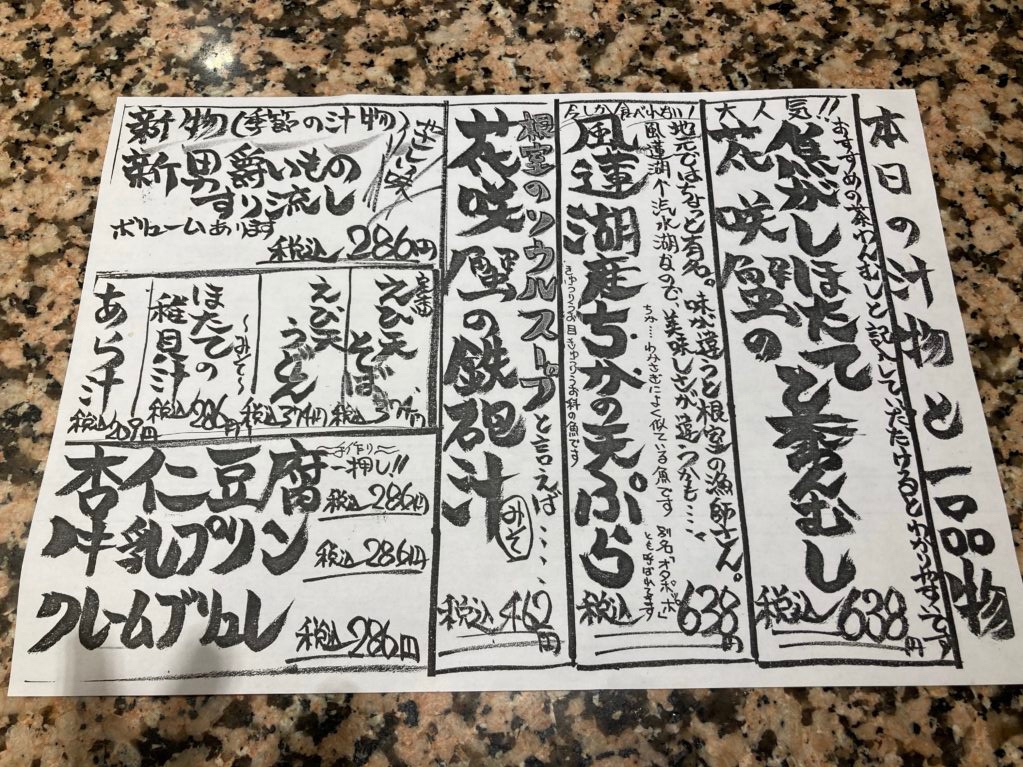 本日の汁物と一品物
大人気!!
おすすめの茶わんむしと記入していただけるとわかりやすいです
焦がしほたてと
花咲蟹の
茶わんむし
税込638円
今しか食べれない!
地元ではちょっと有名。味が違うと根室の漁師さん。
風蓮湖が汽水湖なので、美味しさが違うかも‥‥
ちか‥‥わかさぎによく似ている魚です
別名「オタポッポ」
とも呼ばれてます
風蓮湖産ちかの天ぷら
きゅうりうお目きゅうりうお科の魚です
税込638円
根室のソウルスープと言えば‥‥
花咲蟹の鉄砲汁
みそ
税込462円
新物(季節の汁物)
新男爵いもの
すり流し
ボリュームあります
税込286円
定番
えび天そば
税込374円
えび天うどん
税込374円
ほたての
稚貝汁
〜みそ〜
税込286円
あら汁
税込209円
〜手作り〜
一押し!!
杏仁豆腐
税込286円
牛乳プリン
税込286円
クレームブリュレ
税込286円